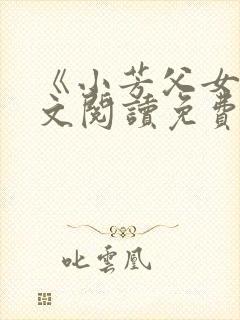 《小芳父女
文閱讀免費
叱雲凰